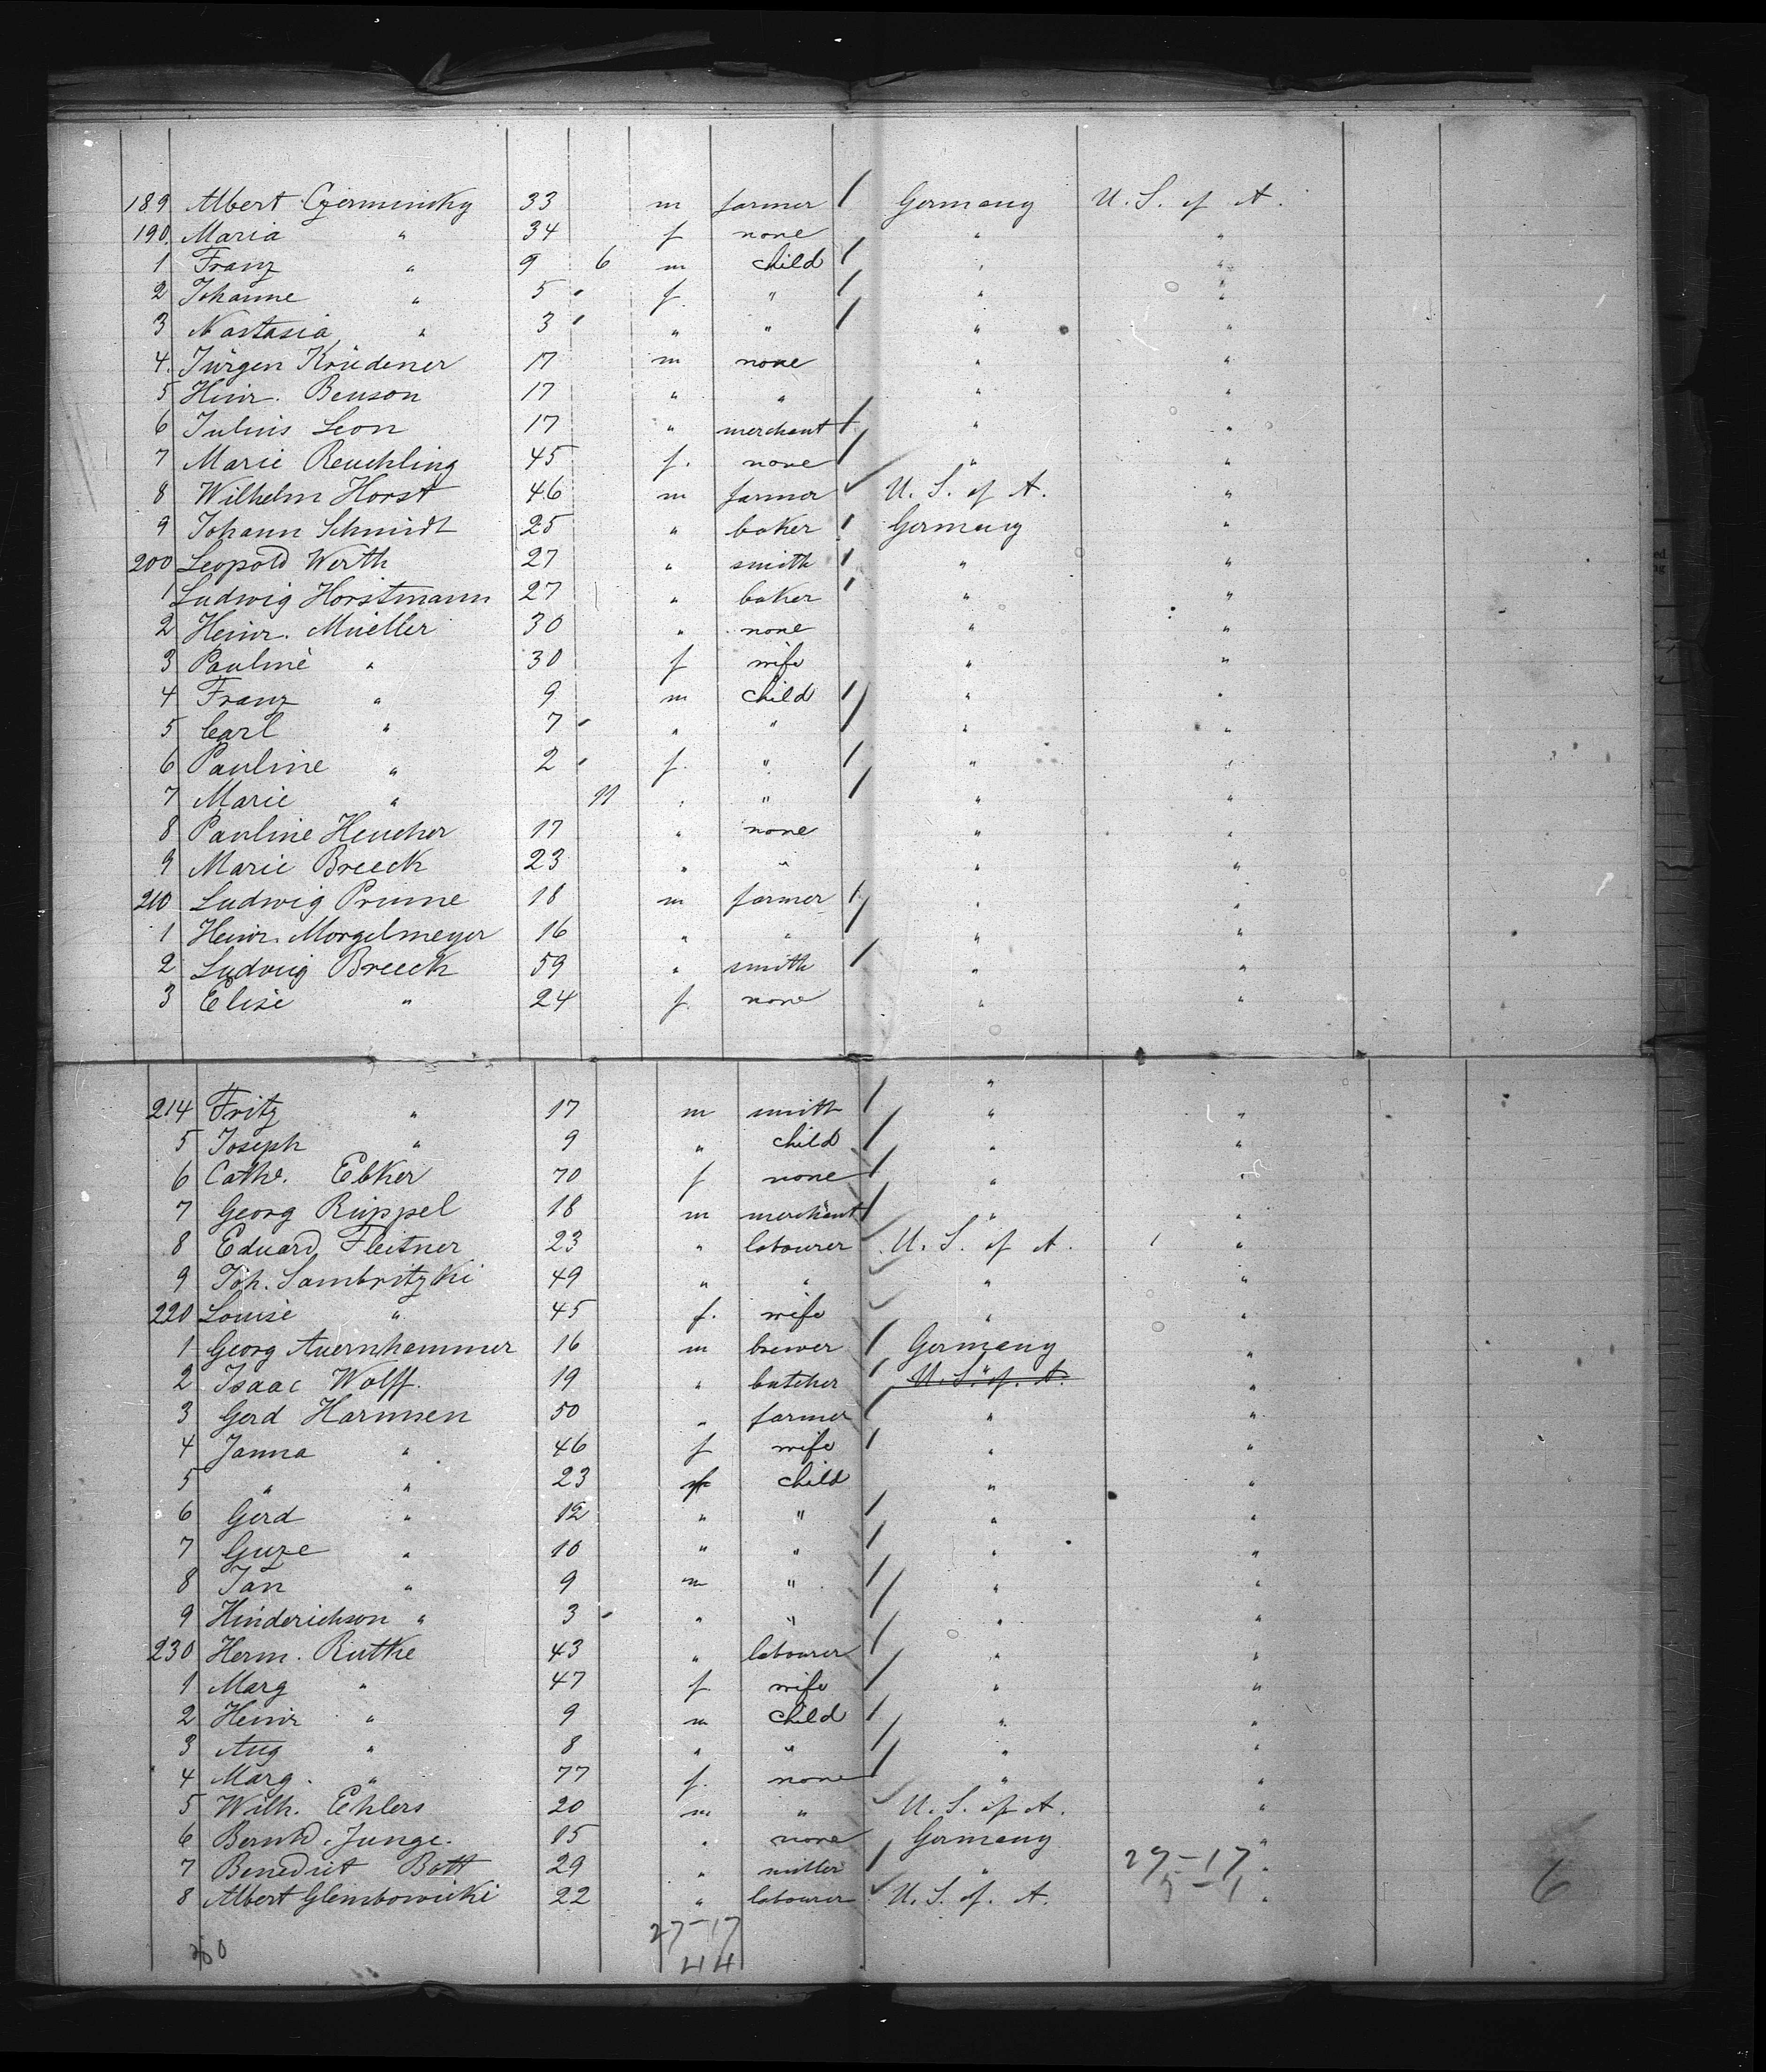 189 Albert Czerminsky 33 m farmer / Germany U. S. of A.
190. Maria " 34 f none " "
1 Franz " 9 6 m child / " "
2 Johanne " 5 f. " / " "
3 Nastasia " 3 " " / " "
4. Jürgen Krüdener 17 m none " "
5 Heinr. Benson 17 " " " "
6 Julius Leon 17 " merchant / " "
7 Marie Reuchling 45 f. none / " "
8 Wilhelm Horst 46 m farmer ✓ U. S. of A. "
9 Johann Schmidt 25 " baker / Germany "
200 Leopold Werth 27 " smith / " "
1 Ludwig Horstmann 27 " baker / " "
2 Heinr. Mueller 30 " none " "
3 Pauline " 30 f wife " "
4 Franz " 9 m child / " "
5 Carl " 7 " " / " "
6 Pauline " 2 f. " / " "
7 Marie " 11 " " / " "
8 Pauline Heucher 17 " none " "
9 Marie Breeck 23 " " " "
210 Ludwig Prume 18 m farmer / " "
1 Heinr. Morgelmeyer 16 " " / " "
2 Ludwig Breeck 59 " smith / " "
3 Elise " 24 f. none " "
"
214 Fritz " 17 m smith / " "
5 Joseph " 9 " child / " "
6 Cathr. Ebker 70 f none / " "
7 Georg Rüppel 18 m merchant / " "
8 Eduard Fleitner 23 " labourer ✓ U. S. of A. "
9 Joh. Sambritzki 49 " " ✓ " "
220 Louise " 45 f. wife ✓ " "
1 Georg Auernhammer 16 m brewer / Germany "
2 Isaac Wolff. 19 " butcher / " U. S. of. A. "
3 Gerd Harmsen 50 " farmer / " "
4 Janna " 46 f wife / " "
5 " " 23 f child " "
6 Gerd " 12 " " / " "
7 " 10 " " / " "
8 Jan " 9 m " / " "
9 Hinderichson " 3 " " / " "
230 Herm. Rutke 43 " labourer / " "
1 Marg " 47 f. wife / " "
2 Heinr " 9 m child / " "
3 Aug " 8 " " / " "
4 Marg. " 77 f. none / " "
5 Wilh. Ehlers 20 m " ✓ U. S. of A. "
6 Bernhd. Junge. 15 " none Germany "
7 Benedict Bott 29 " miller / " 29-17 "
8 Albert Glembowicki 22 " labourer ✓ U. S. of. A. 5-1 " 6
27-17
44